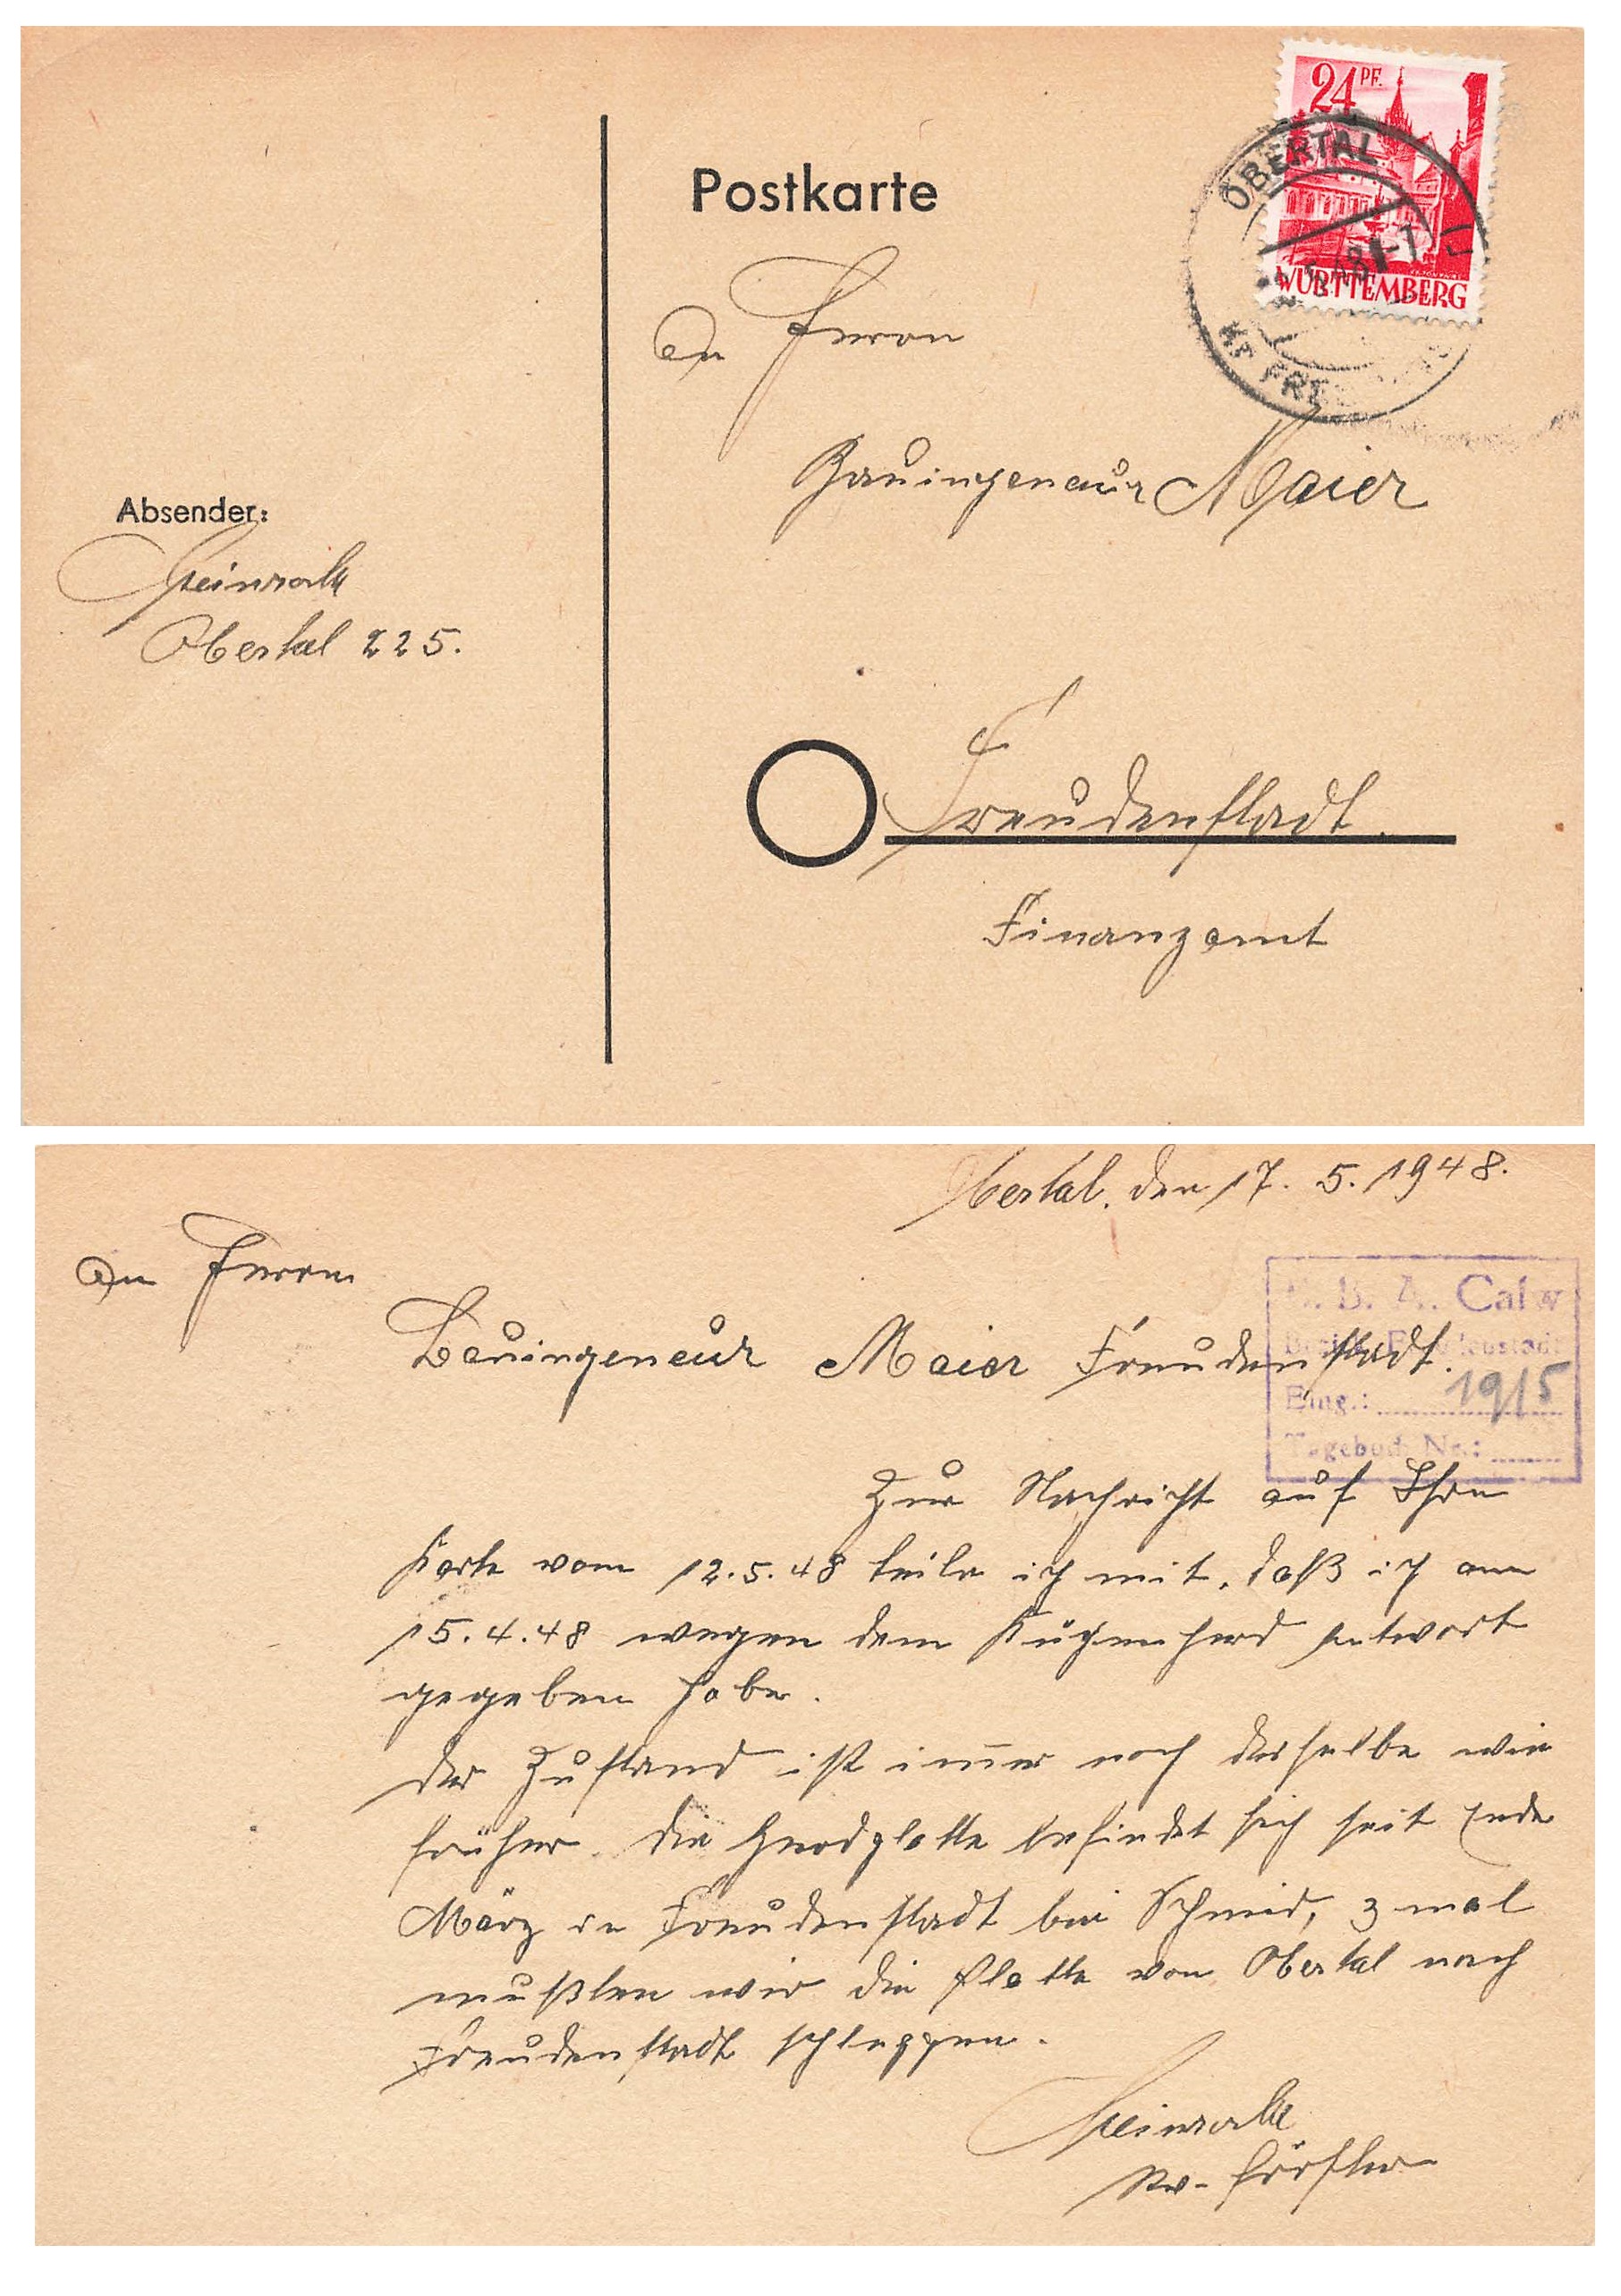 Postkarte
24 PF.
WÜRTTEMBERG
OBERTAL
KR FRE
An Herrn
Bauingeneur Maier
Absender:
Obertal 225.
Freudenstadt.
Finanzamt
Obertal, den 17. 5. 1948.
An Herrn
Bauingeneur Maier Freudenstadt.
B. A. Calw
Eing.: 19/5
Tagebuch Nr.:
Zur Nachricht auf Ihre
Karte vom 12.5.48 teile ich mit, daß ich am
15.4.48 wegen dem Küchenherd Antwort
gegeben habe.
Der Zustand ist immer noch derselbe wie
früher. Die Herdplatte befindet sich seit Ende
März in Freudenstadt bei Schmid, 3 mal
mußten wir die Platte von Obertal nach
Freudenstadt schleppen.
Förster